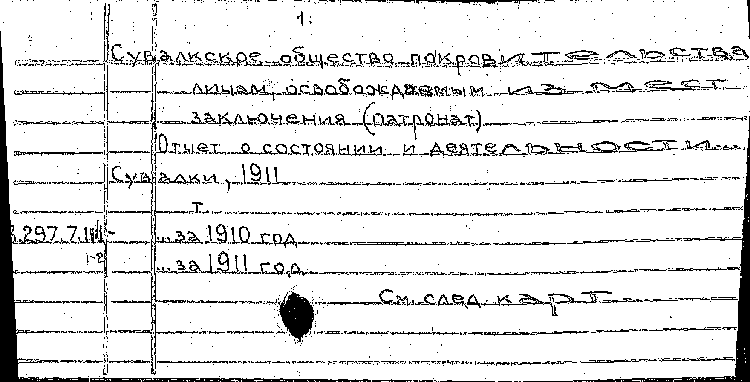 1.
Сувалкское общество покровительства
лицам, освобождаемым из мест
заключения (патронат)
Отчет о состоянии и деятельности...
Сувалки, 1911
т.
297.7.
1-2
...за 1910 год
...за 1911 год
См. след. карт.